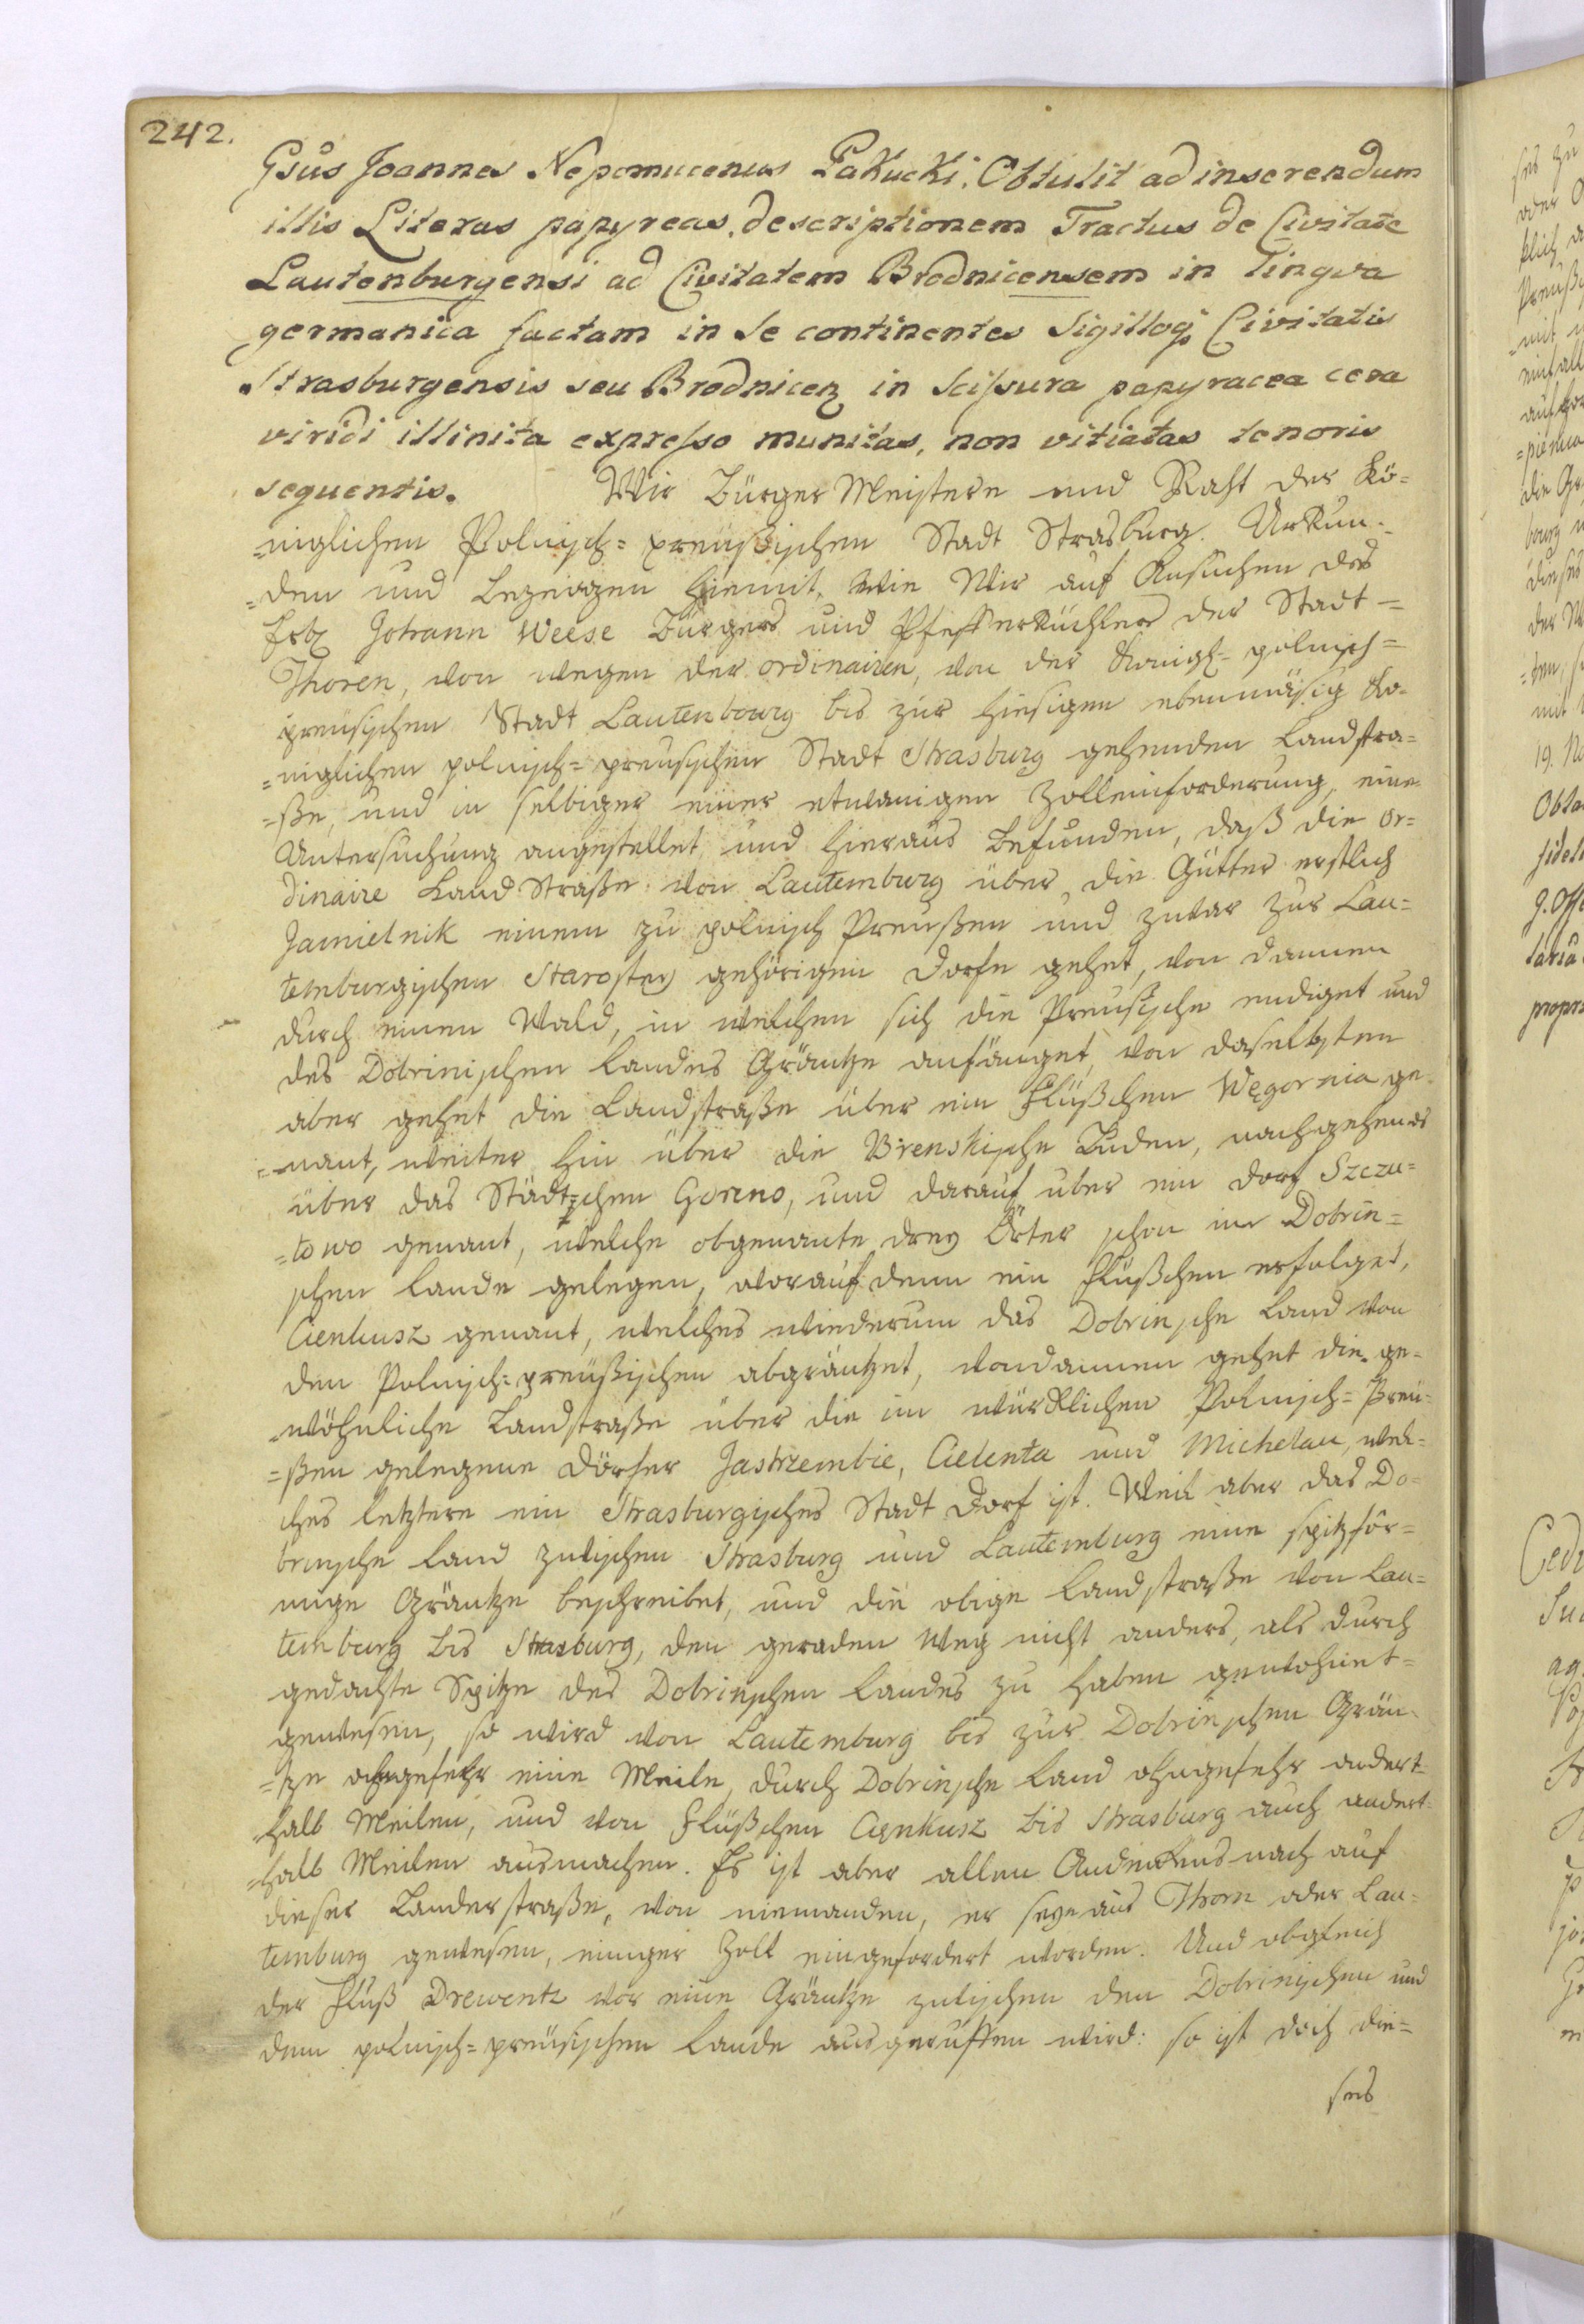 242.
Gsus Joannes Nepomucenus Pakucki. Obtulit ad inserendum
illis Literas papyreas, descriptionem Tractus de Civitate
Lautenburgensi ad Civitatem Brodnicensem in Lingva
germanica factam in Se continentes Sigilloq Civitatis
Strasburgensis seu Brodnicen in Scissura papyracea cera
viridi illinita expresso munitas, non vitiatas tenoris
sequentis. Wir Bürger Meistere und Raht der Kö=
=niglichen Polnisch=preußischen Stadt Strasburg. Urkun=
=den und bezeigen hiemit, wie Wir auf Ansuchen des
Johann Weese Bürgers und Pfefferküchlers der Stadt=
Thoren, von wegen der ordinairen, von der Königl= polnisch=
preusischen Stadt Lautenbourg bis zur hiesigen ebenmäsig Kö=
=niglichen polnisch=preusischen Stadt Strasburg gehenden Landstra=
=ße, und in selbiger einer etwanigen Zolleinforderung, eine
Untersuchung angestellet und hieraus befunden, daß die or=
dinaire Land Straße von Lautemburg über die Gütter erstlich
Jamielnik einem zu polnisch Preußen und zwar zur Lau=
temburgischen Starostey gehörigen Dorfe gehet, von dannen
durch einen Wald, in welchen sich die Preusische endiget und
des Dobrinischen Landes Gräntze anfänget, von daselbsten
aber gehet die Landstraße über ein Flüßchen Węgornia ge=
=nant, weiter hin über die Brenskische Buden, nachgehends
über das Städtchen Gorzno, und darauf uber ein dorf Szczu=
=towo genant, welche obgenante drey Örter schon im Dobrin=
schen Lande gelegen, worauf denn ein Flüßchen erfolget,
Cienkusz genant, welches wiederum das Dobrinsche Land von
den Polnisch=preußischen abgräntzet, von dannen gehet die ge=
=wöhnliche Landstraße über die im würcklichen Polnisch=Preu=
=ßen gelegene Dörfer Jastrzembie, Cielenta und Michelau, wel=
ches letztere ein Strasburgisches Stadt Dorf ist. Weil aber das Do=
brinsche Land zwischen Strasburg und Lautemburg eine spitzför=
mige Gräntze beschreibet, und die obige Landstraße von Lau=
temburg bis Strasburg, den geraden Weg nicht anders, als durch
gedachte Spitze des Dobrinschen Landes zu haben gewohnet=
gewesen, so wird von Lautemburg bis zur Dobrinschen Grän=
=tze ohngefehr eine Meile, durch Dobrinsche Land ohngefehr andert=
halb Meilen, und von Flüßchen Cienkusz bis Strasburg auch andert=
=halb Meilen ausmachen. Es ist aber allen Andenkens nach auf
dieser Landerstraße, von niemanden, er seye aus Thorn oder Lau=
temburg gewesen, einiger Zoll eingefordert worden. Und obgleich
der Fluß Drewentz vor eine Gräntze zwischen den Dobrinischen und
dem polnisch=preusischen Lande ausgeruffen wird: so ist doch die=
ses